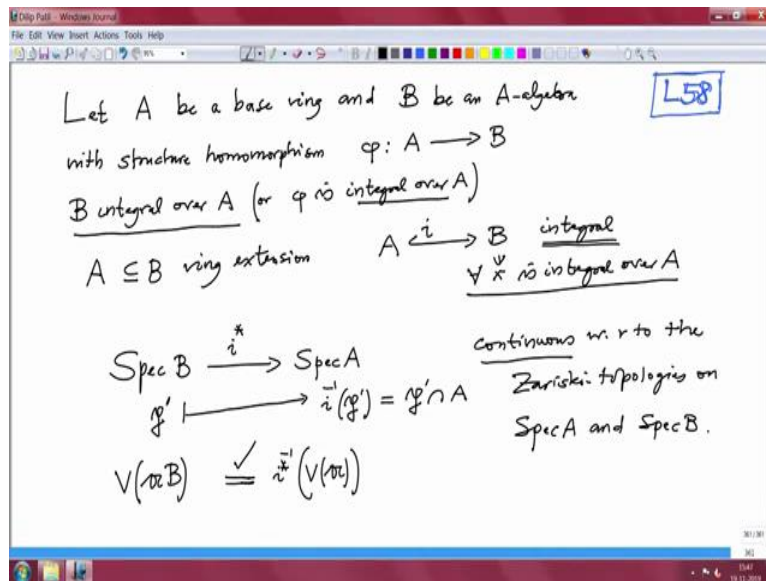 Dilip Patil - Windows Journal
File Edit View Insert Actions Tools Help
L58
Let A be a base ring and B be an A-algebra
with structure homomorphism φ: A ⟶ B
B integral over A (or φ is integral over A)
A ⊆ B ring extension A ↪ B integral
i
∀ x is integral over A
Spec B ⟶ Spec A continuous w. r to the
i*
𝔭' ⟼ i⁻¹(𝔭') = 𝔭' ∩ A Zariski-topologies on
Spec A and Spec B.
V(𝔞B) = i*⁻¹(V(𝔞))
361/361
361
15:47
19-11-2019